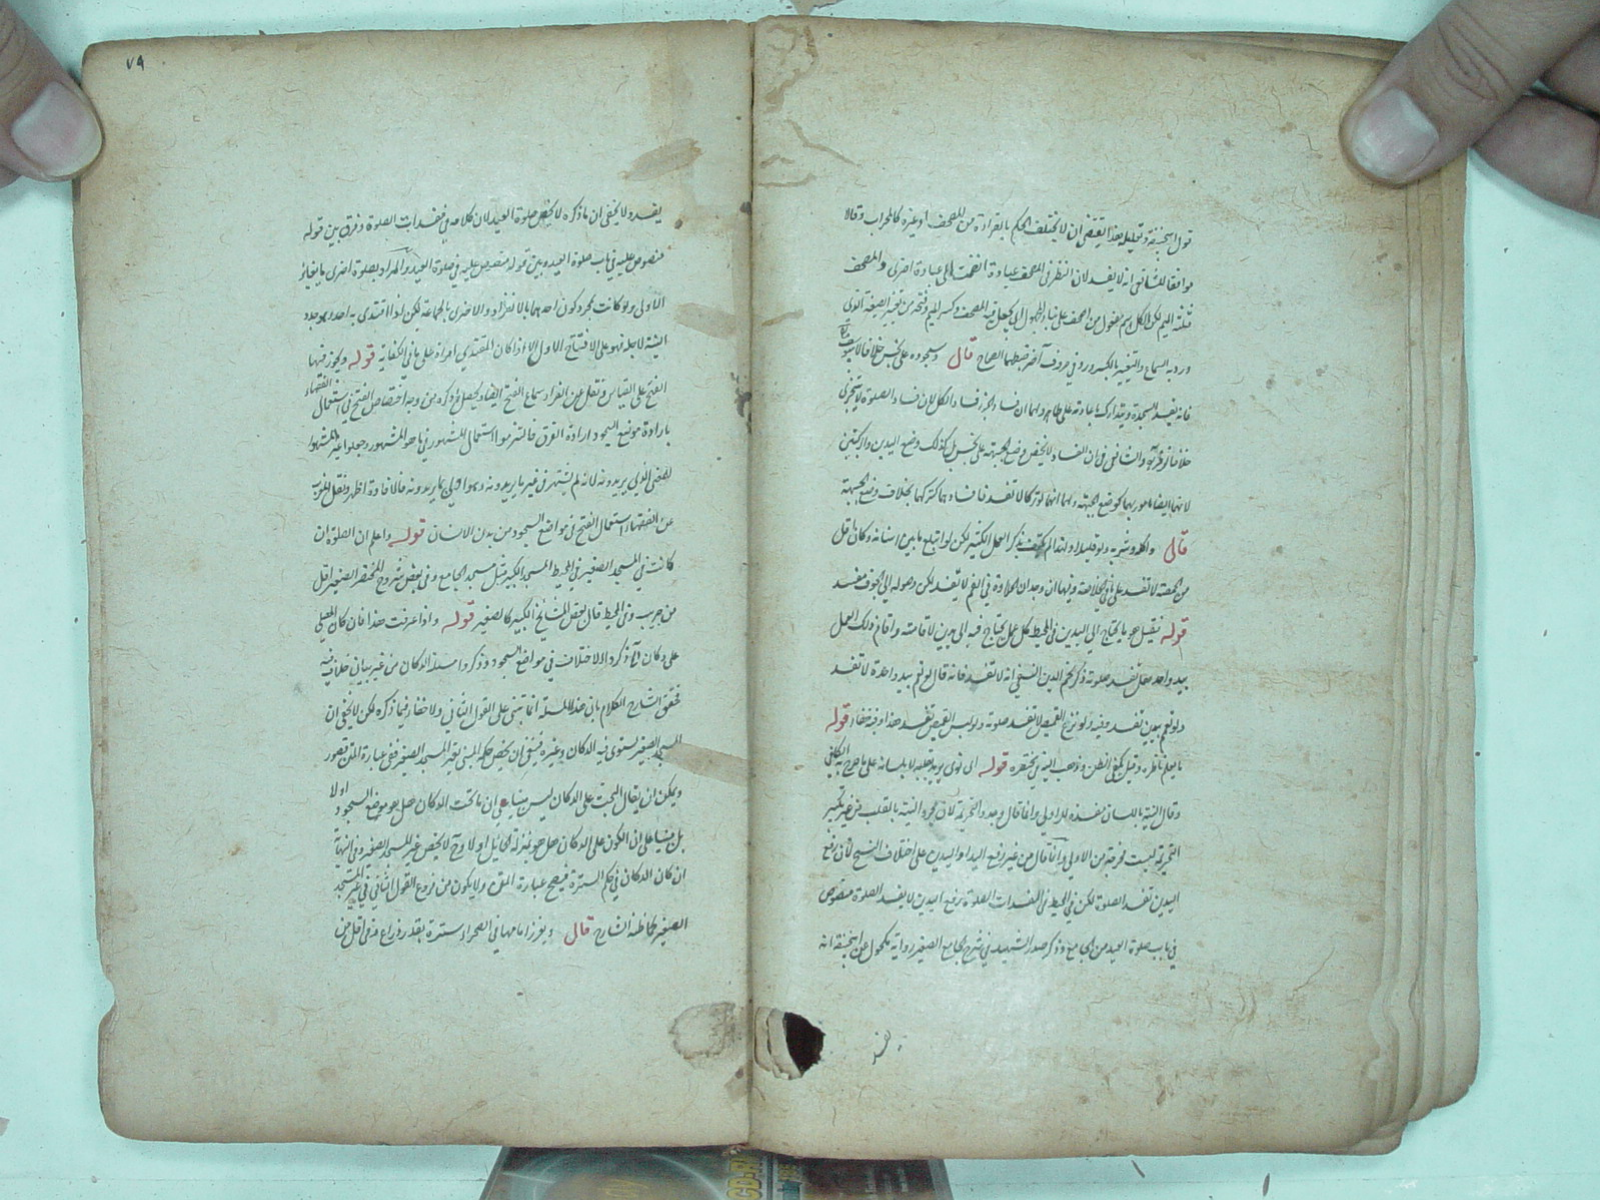 قول ابيحنيفة وتعليله بهذا يقتضى ان لا يختلف الحكم بالقراءة من المصحف او غيره كالمحراب وقالا
موافقا للشافعى انه لا يفسد لان النظر فى المصحف عبادة انضمت الى عبادة اخرى والمصحف
مثلثة الميم لكن الكل اسم مفعول من اصحف على بناء المجهول اى جعل فيه المصحف وكسر الميم وفتحه من تغيير الصيغة الذى
ورد به السماع والتغيير بالكسر ورد فى حروف آخر ضبطها الصحاح قال وسجوده على نجس خلافا لابى يوسف
فانه يفسد السجدة ويتدارك باعادته على طاهر ولهما ان فساد الجزء فساد الكل لان فساد الصلوة لا يتجزى
خلافا لزفر والشافعى فى ان الفساد لا يخص وضع الجبهة على نجس بل كذلك وضع اليدين والركبتين
لانها ايضا مأمور بها كوضع الجبهة ولهما انها لو تركها لا تفسد فافسادها كتركها بخلاف وضع الجبهة
قال واكله وشربه ولو قليلا ولهذا لم يكتف بذكر العمل الكثير لكن لو ابتلع ما بين اسنانه وكان اقل
من الحمصة لا تفسد على ما فى الخلاصة وفيها ان وجدان الحلاوة فى الفم لا تفسد لكن وصوله الى الجوف مفسد
قوله فقيل هو ما يحتاج الى اليدين فى المحيط كل عمل يحتاج فيه الى يدين لاقامته واقام ذلك العمل
بيد واحد هل تفسد صلوته ذكر نجم الدين النسفى انه لا تفسد فانه قال لو تعمم بيد واحدة لا تفسد
ولو تعمم بيدين تفسد وفيه لو نزع القميص لا تفسد صلوته ولو لبس القميص تفسد هذا وفيه خفاء قوله
ما يعلم ناظره وقيل يكفى الظن وذهب اليه فى مختصره قوله اى نوى يريد بقلبه لا بلسانه على ما صرح به الكافى
وقال النية باللسان مفسده للاولى وانما قال وجدد التحريمة لان مجرد النية بالقلب من غير تكبير
التحريمة ليست مخرجة من الاولى وانما قال من غير رفع اليد او اليدين على اختلاف النسخ لان رفع
اليدين تفسد الصلوة لكن فى المحيط فى مفسدات الصلوة رفع اليدين لا يفسد الصلوة منصوص
فى باب صلوة العيد من الجامع وذكر صدر الشهيد فى شرح الجامع الصغير رواية مكحول عن ابيحنيفة انه
يفسد
٧٩
يفسد ولا يخفى ان ما ذكره لا يخص صلوة العيد لان كلامه فى مفسدات الصلوة وفرق بين قوله
منصوص عليه فى باب صلوة العيد وبين قوله منصوص عليه فى صلوة العيد والمراد بصلوة اخرى ما يغاير
الاولى ولو كانت بمجرد كون احدهما بالانفراد والاخرى بالجماعة لكن لو اقتدى به احد وهو جدد
النية لاجله فهو على الافتتاح الاول الا اذا كان المقتدى امرأة على ما فى الكفاية قوله ويجوز فيها
الفتح على القياس ونقل عن الفراء سماع الفتح ايضا ويحصل من ذكره من وجه اختصاص الفتح فى استعمال الفقهاء
بارادة موضع السجود ارادة الفرق فالتزموا استعمال المشهور فى ما هو المشهور وجعلوا غير المشهور
لمعنى الذى يريدونه لانه لم يشتهر فى غير ما يريدونه وهو اولى بما يريدونه فالافادة اظهر ونقل المغرب
عن الفقهاء استعمال الفتح فى مواضع السجود من بدن الانسان قوله واعلم ان الصلوة ان
كانت فى المسجد الصغير فى المحيط المسجد الكبير مثل مسجد الجامع وفى بعض شروح المختصر الصغير اقل
من جريب وفى المحيط قال بعض المشايخ الكبير كالصغير قوله واذا عرفت هذا فان كان المصلى
على دكان آه ذكروا الاختلاف فى مواضع السجود وذكروا مسئلة الدكان من غير بيان خلاف فيه
فحقق الشارح الكلام بان هذه المسئلة انما تبتنى على القول الثانى ولا خفاء فيما ذكره لكن لا يخفى ان
المسجد الصغير يستوى فيه الدكان وغيره فينبغى ان يخص حكم المبنى بغير المسجد الصغير ففى عبارة المتن قصور
ويمكن ان يقال البحث على الدكان ليس مبنيا على ان ما تحت الدكان هل هو موضع السجود اولا
بل مبنيا على ان الكون على الدكان هل هو بمنزلة الحائل اولا وح لا يخص غير المسجد الصغير وفى النهاية
ان كان الدكان فى حكم السترة فيصح عبارة المتن ولا يكون من فروع القول الثانى فى غير المسجد
الصغير كما ظنه الشارح قال ويغرز امامها فى الصحراء سترة بقدر ذراع ففى اقل من